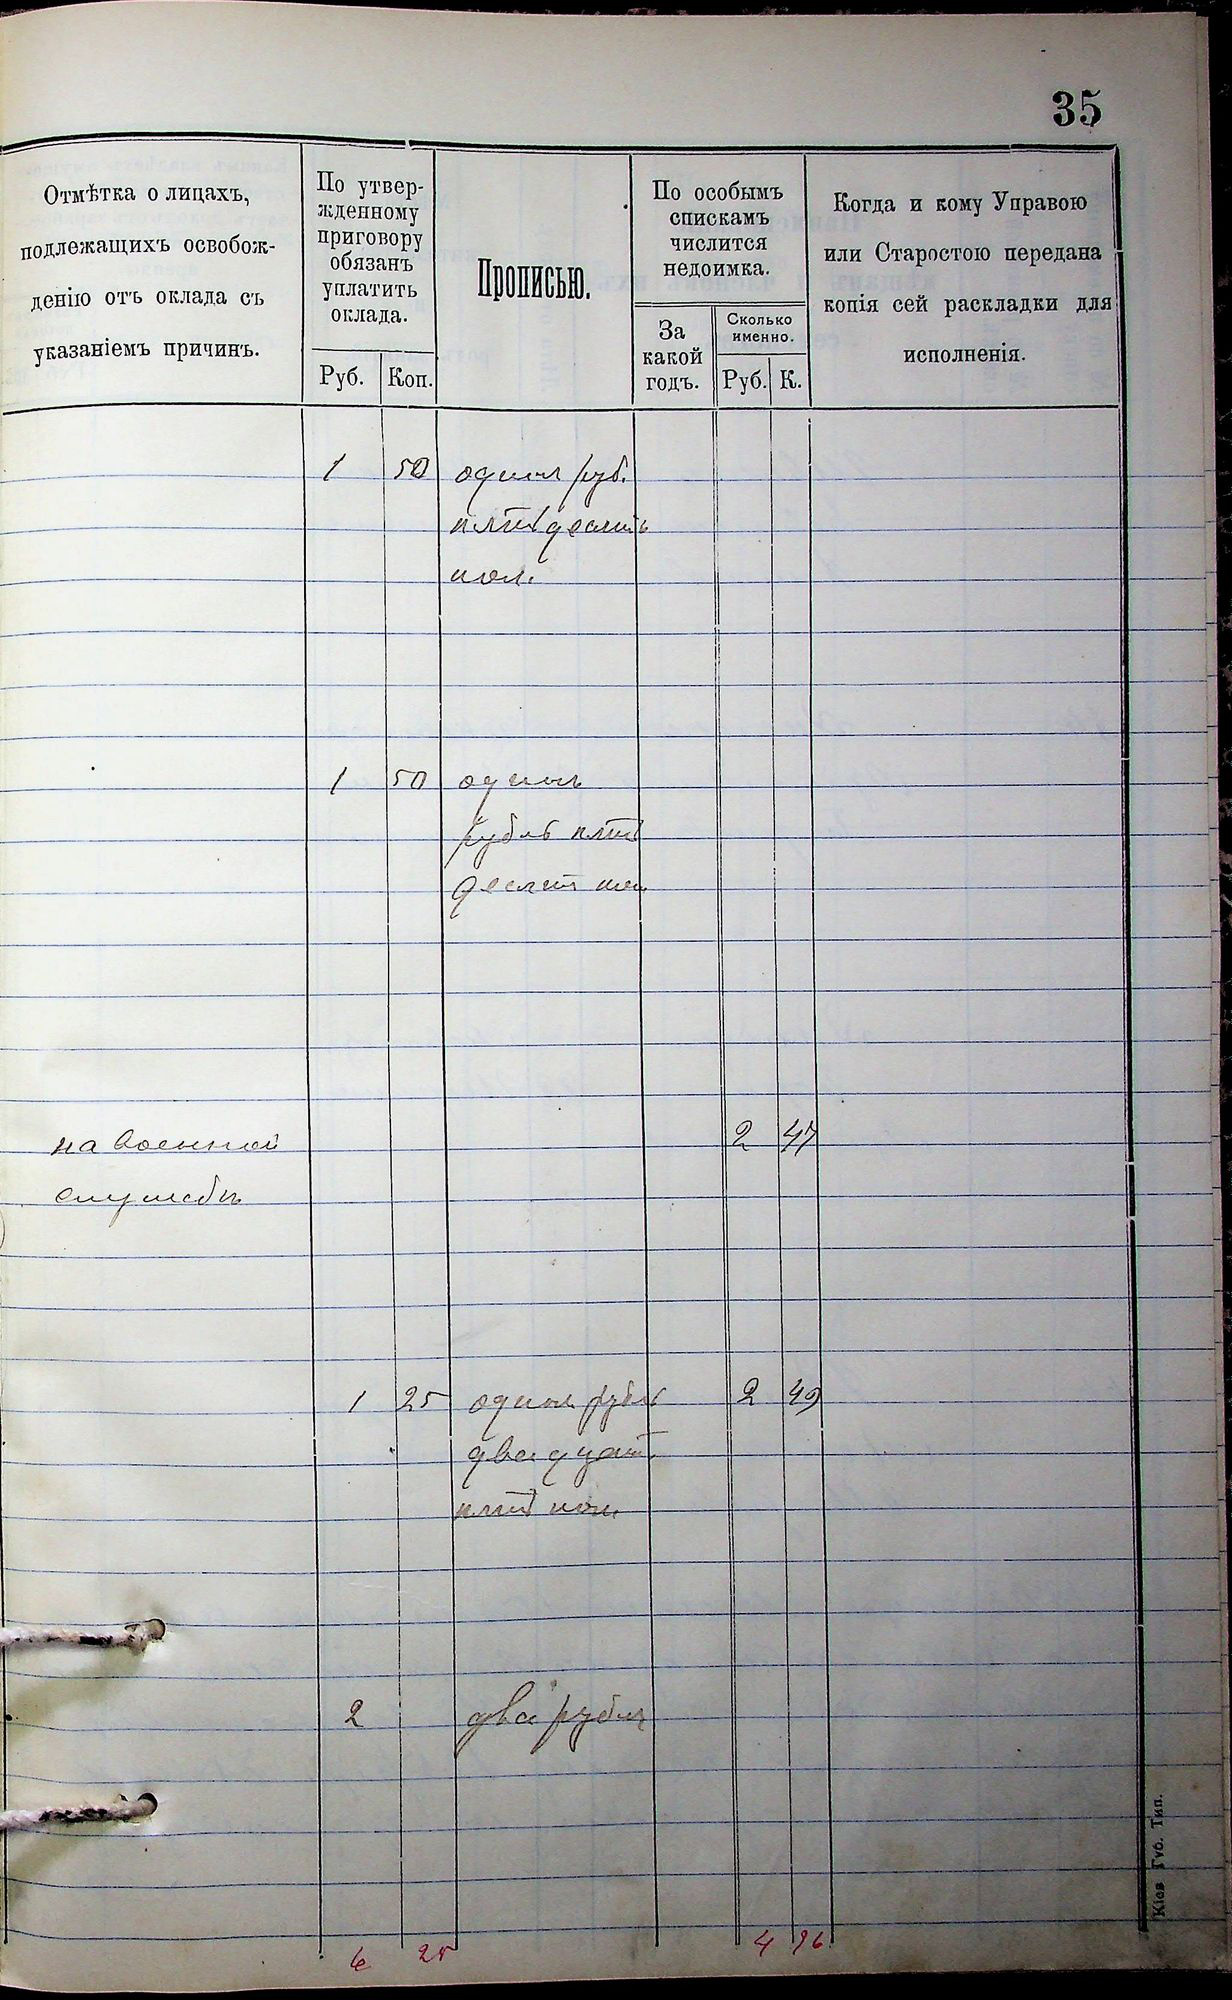 35
Отмѣтка о лицахъ,
подлежащихъ освобож-
денію отъ оклада съ
указаніемъ причинъ.
По утвер-
жденному
приговору
обязанъ
уплатить
оклада.
Руб.
Коп.
Прописью.
По особымъ
спискамъ
числится
недоимка.
За
какой
годъ.
Сколько
именно.
Руб.
К.
Когда и кому Управою
или Старостою передана
копія сей раскладки для
исполненія.
1 50 одинъ руб.
пятьдесять
коп.
1 50 одинъ
рубль пять
десять коп
на военной 2 47
службѣ
1 25 одинъ рубль 2 49
двадцать
пять коп.
2 два рубля
6 25 4 96
Кіев Губ. Тип.